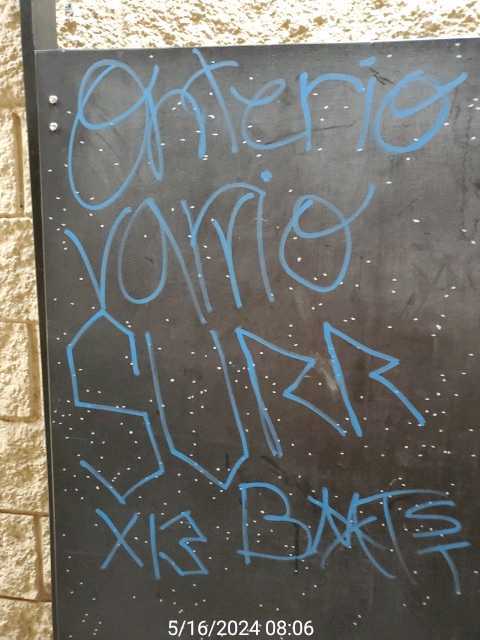 Onterio
varrio
SURR
X13 BARTS
T
5/16/2024 08:06